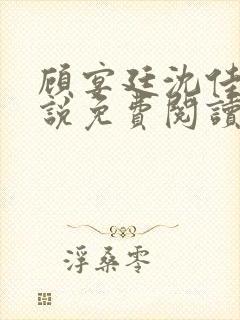 顾宴廷沈佳
說免費閱讀
浮桑零